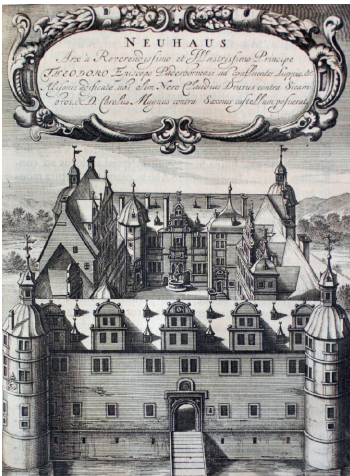 NEUHAUS
Arx à Reverendissimo et Illustrissimo Principe
THEODORO Episcopo Paderbornensi ad confluentes Luppiæ &
Alisonis ædificata, ubi olim Nero Claudius Drusus contra Sicam-
bros, & D. Carolus Magnus contra Saxones castellum posuerat